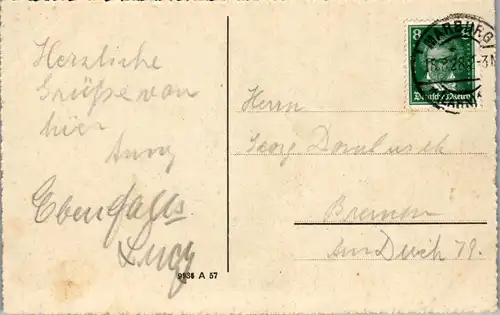 Herzliche
Grüße von
hier
Anny
Ebenfalls
Lucy
9936 A 57
8
Deutsches Reich
MARBURG
Herrn
Georg Dombusch
Bremen
Am Deich 79.